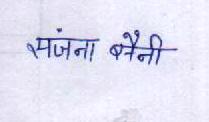 संजना बनैनी